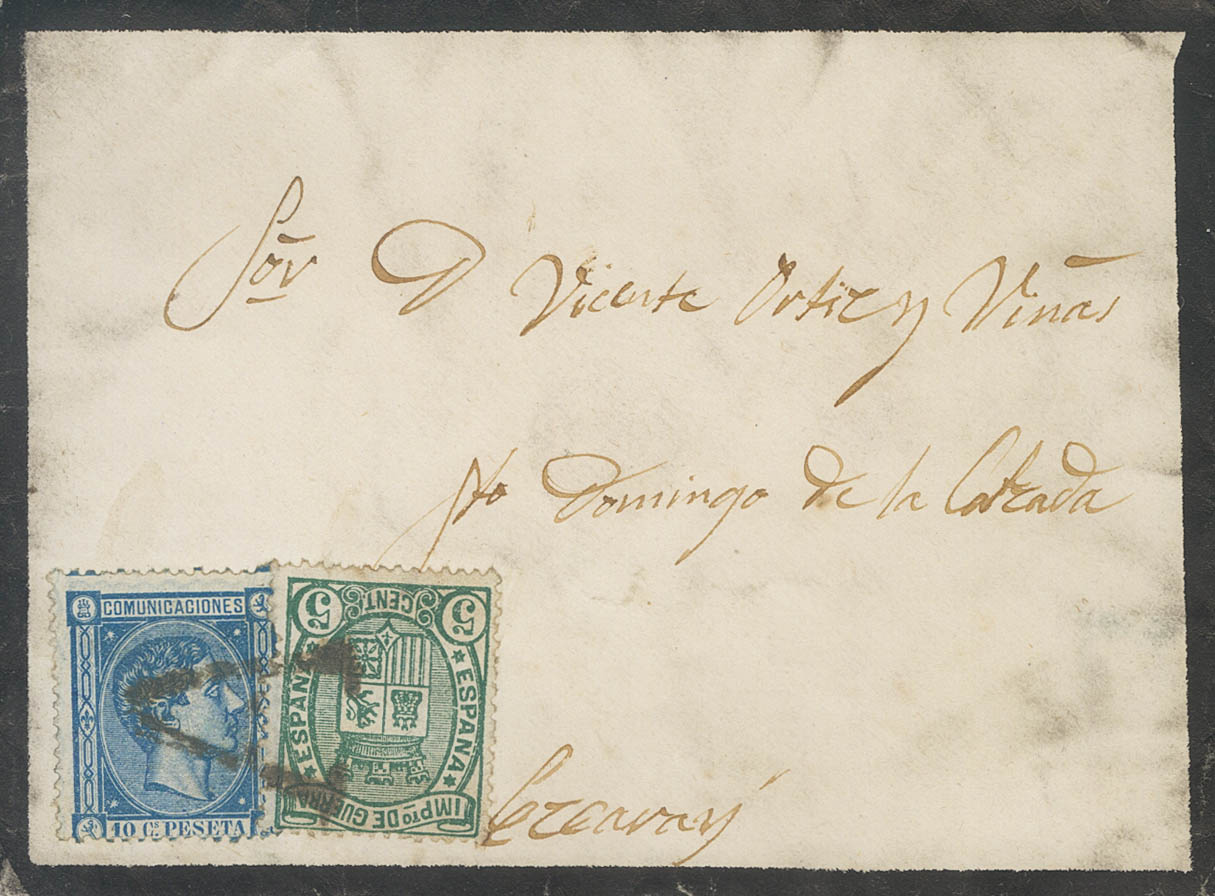 Sor D Vicente Ortiz y Viñas
Sto Domingo de la Calzada
Ezcaray
COMUNICACIONES
10 Cs PESETA
5 CENT 5
ESPAÑA ESPAÑA
IMPto DE GUERRA